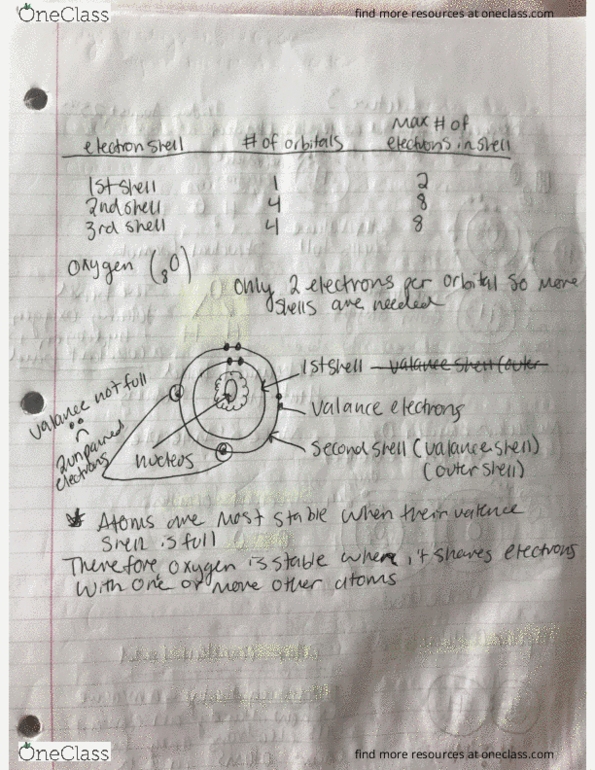 OneClass
find more resources at oneclass.com
electron shell # of orbitals Max # of electrons in shell
1st shell 1 2
2nd shell 4 8
3rd shell 4 8
Oxygen (8O)
Only 2 electrons per orbital so more
shells are needed
1st shell valance shell (outer
valance not full
valance electrons
2 unpaired
electrons
nucleos
Second shell (valance shell)
(outer shell)
* Atoms are most stable when their valence
shell is full
Therefore oxygen is stable when it shares electrons
with one or more other atoms
OneClass
find more resources at oneclass.com